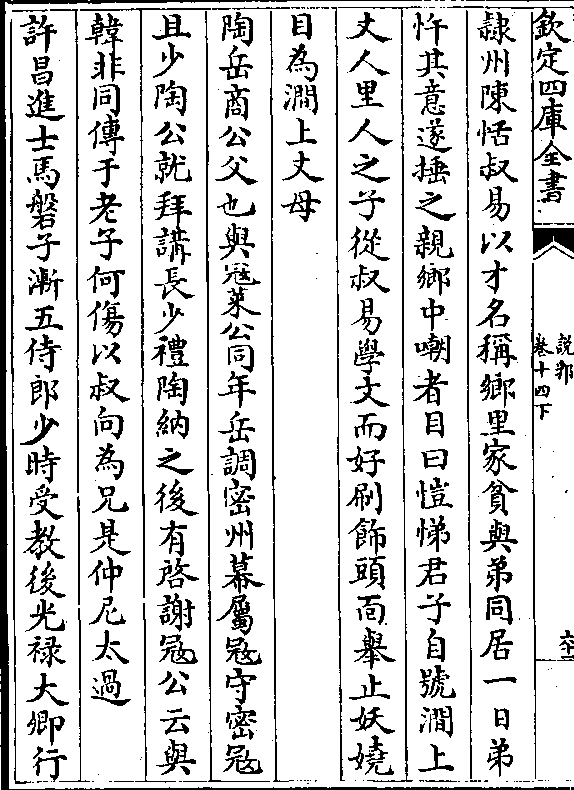 欽定四庫全書
說郛
卷十四下
六十二
隷州陳恬叔易以才名稱鄉里家貧與弟同居一日弟
忤其意遂捶之親鄉中嘲者目曰愷悌君子自號澗上
丈人里人之子從叔易學文而好刷飾頭面舉止妖嬈
目為澗上丈母
陶岳商公父也與冦萊公同年岳調密州幕屬冦守密冦
且少陶公就拜講長少禮陶納之後有啓謝冦公云與
韓非同傳于老子何傷以叔向為兄是仲尼太過
許昌進士馬磐子漸五侍郎少時受教後光禄大卿行